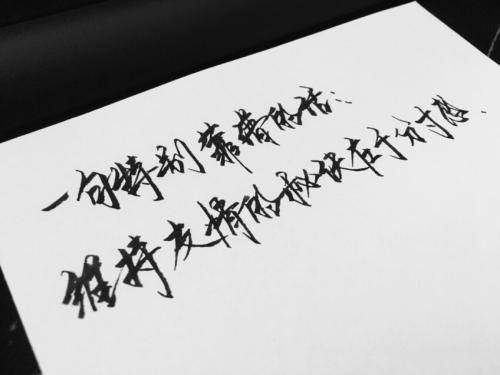 一句特别靠谱的话:
维持友情的秘诀在于分寸感.